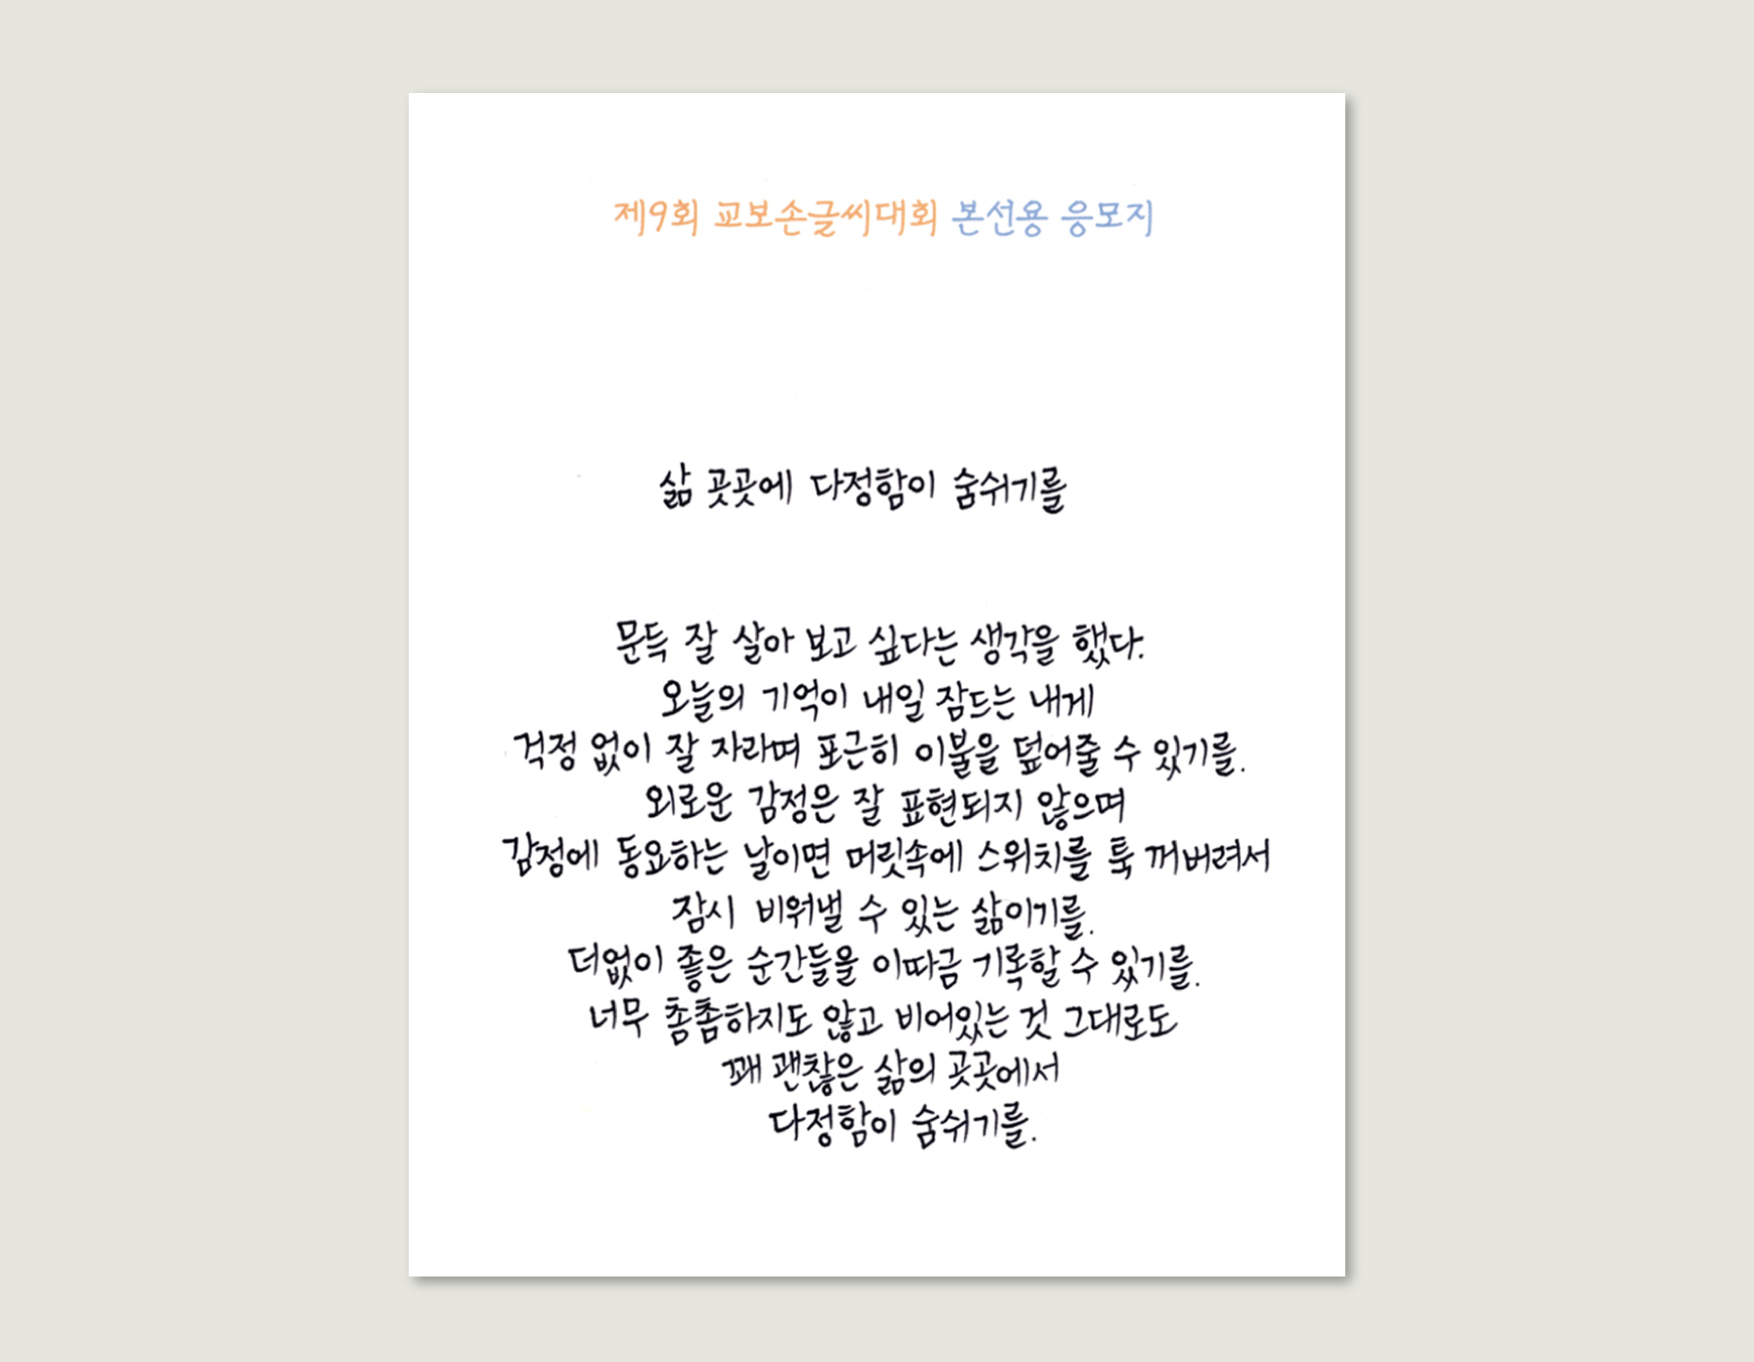 제9회 교보손글씨대회 본선용 응모지
삶 곳곳에 다정함이 숨쉬기를
문득 잘 살아 보고 싶다는 생각을 했다.
오늘의 기억이 내일 잠드는 내게
걱정 없이 잘 자라며 포근히 이불을 덮어줄 수 있기를.
외로운 감정은 잘 표현되지 않으며
감정에 동요하는 날이면 머릿속에 스위치를 툭 꺼버려서
잠시 비워낼 수 있는 삶이기를.
더없이 좋은 순간들을 이따금 기록할 수 있기를.
너무 촘촘하지도 않고 비어있는 것 그대로도
꽤 괜찮은 삶의 곳곳에서
다정함이 숨쉬기를.